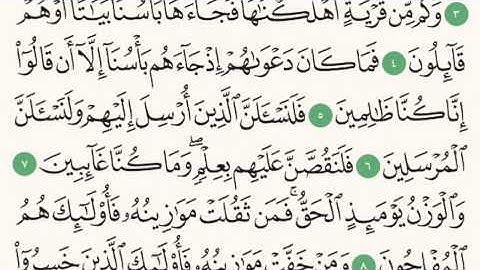 ٣ وَكَم مِّن قَرْيَةٍ أَهْلَكْنَٰهَا فَجَآءَهَا بَأْسُنَا بَيَٰتًا أَوْ هُمْ
قَآئِلُونَ ٤ فَمَا كَانَ دَعْوَىٰهُمْ إِذْ جَآءَهُم بَأْسُنَآ إِلَّآ أَن قَالُوٓا۟
إِنَّا كُنَّا ظَٰلِمِينَ ٥ فَلَنَسْـَٔلَنَّ ٱلَّذِينَ أُرْسِلَ إِلَيْهِمْ وَلَنَسْـَٔلَنَّ
ٱلْمُرْسَلِينَ ٦ فَلَنَقُصَّنَّ عَلَيْهِم بِعِلْمٍۖ وَمَا كُنَّا غَآئِبِينَ ٧
وَٱلْوَزْنُ يَوْمَئِذٍ ٱلْحَقُّۚ فَمَن ثَقُلَتْ مَوَٰزِينُهُۥ فَأُو۟لَٰٓئِكَ هُمُ
ٱلْمُفْلِحُونَ ٨ وَمَنْ خَفَّتْ مَوَٰزِينُهُۥ فَأُو۟لَٰٓئِكَ ٱلَّذِينَ خَسِرُوٓا۟